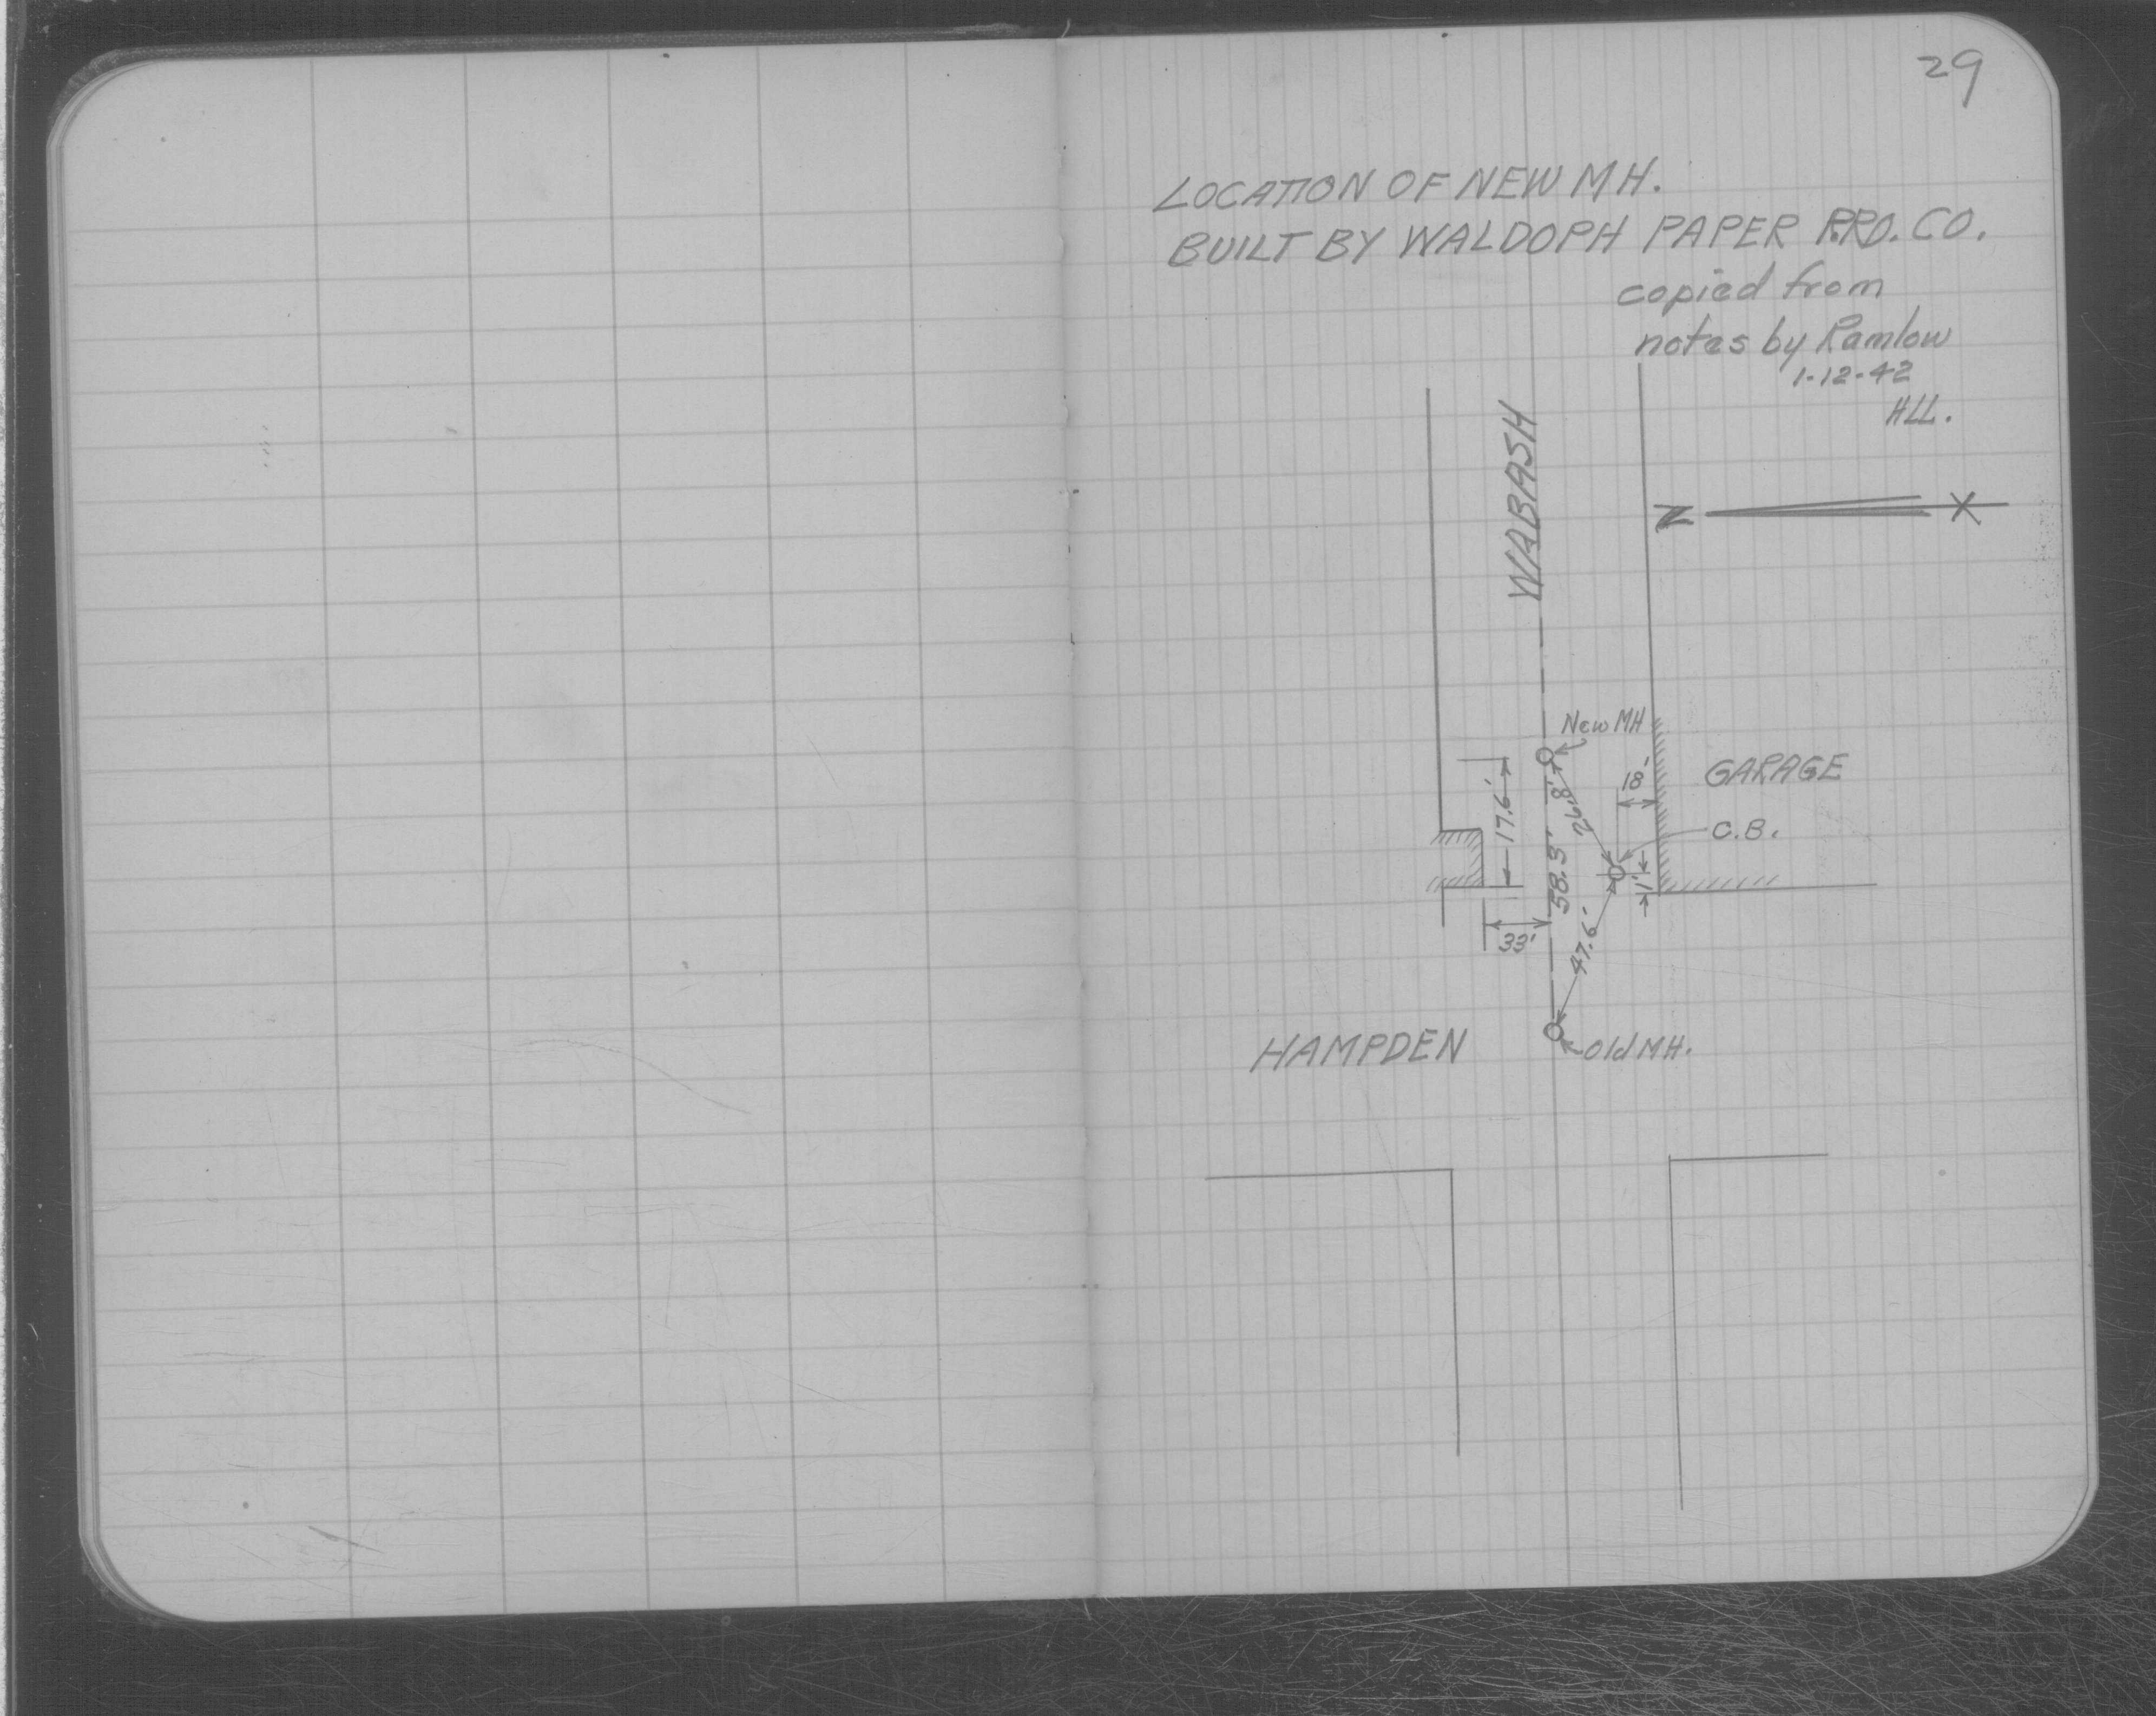 29
LOCATION OF NEW MH.
BUILT BY WALDOPH PAPER PRO. CO.
copied from
notes by Ramlow
1-12-42
HLL.
WABASH
N
New MH
GARAGE
18'
17.6'
26.8'
C.B.
58.3'
1'
33'
47.6'
HAMPDEN
Old MH.